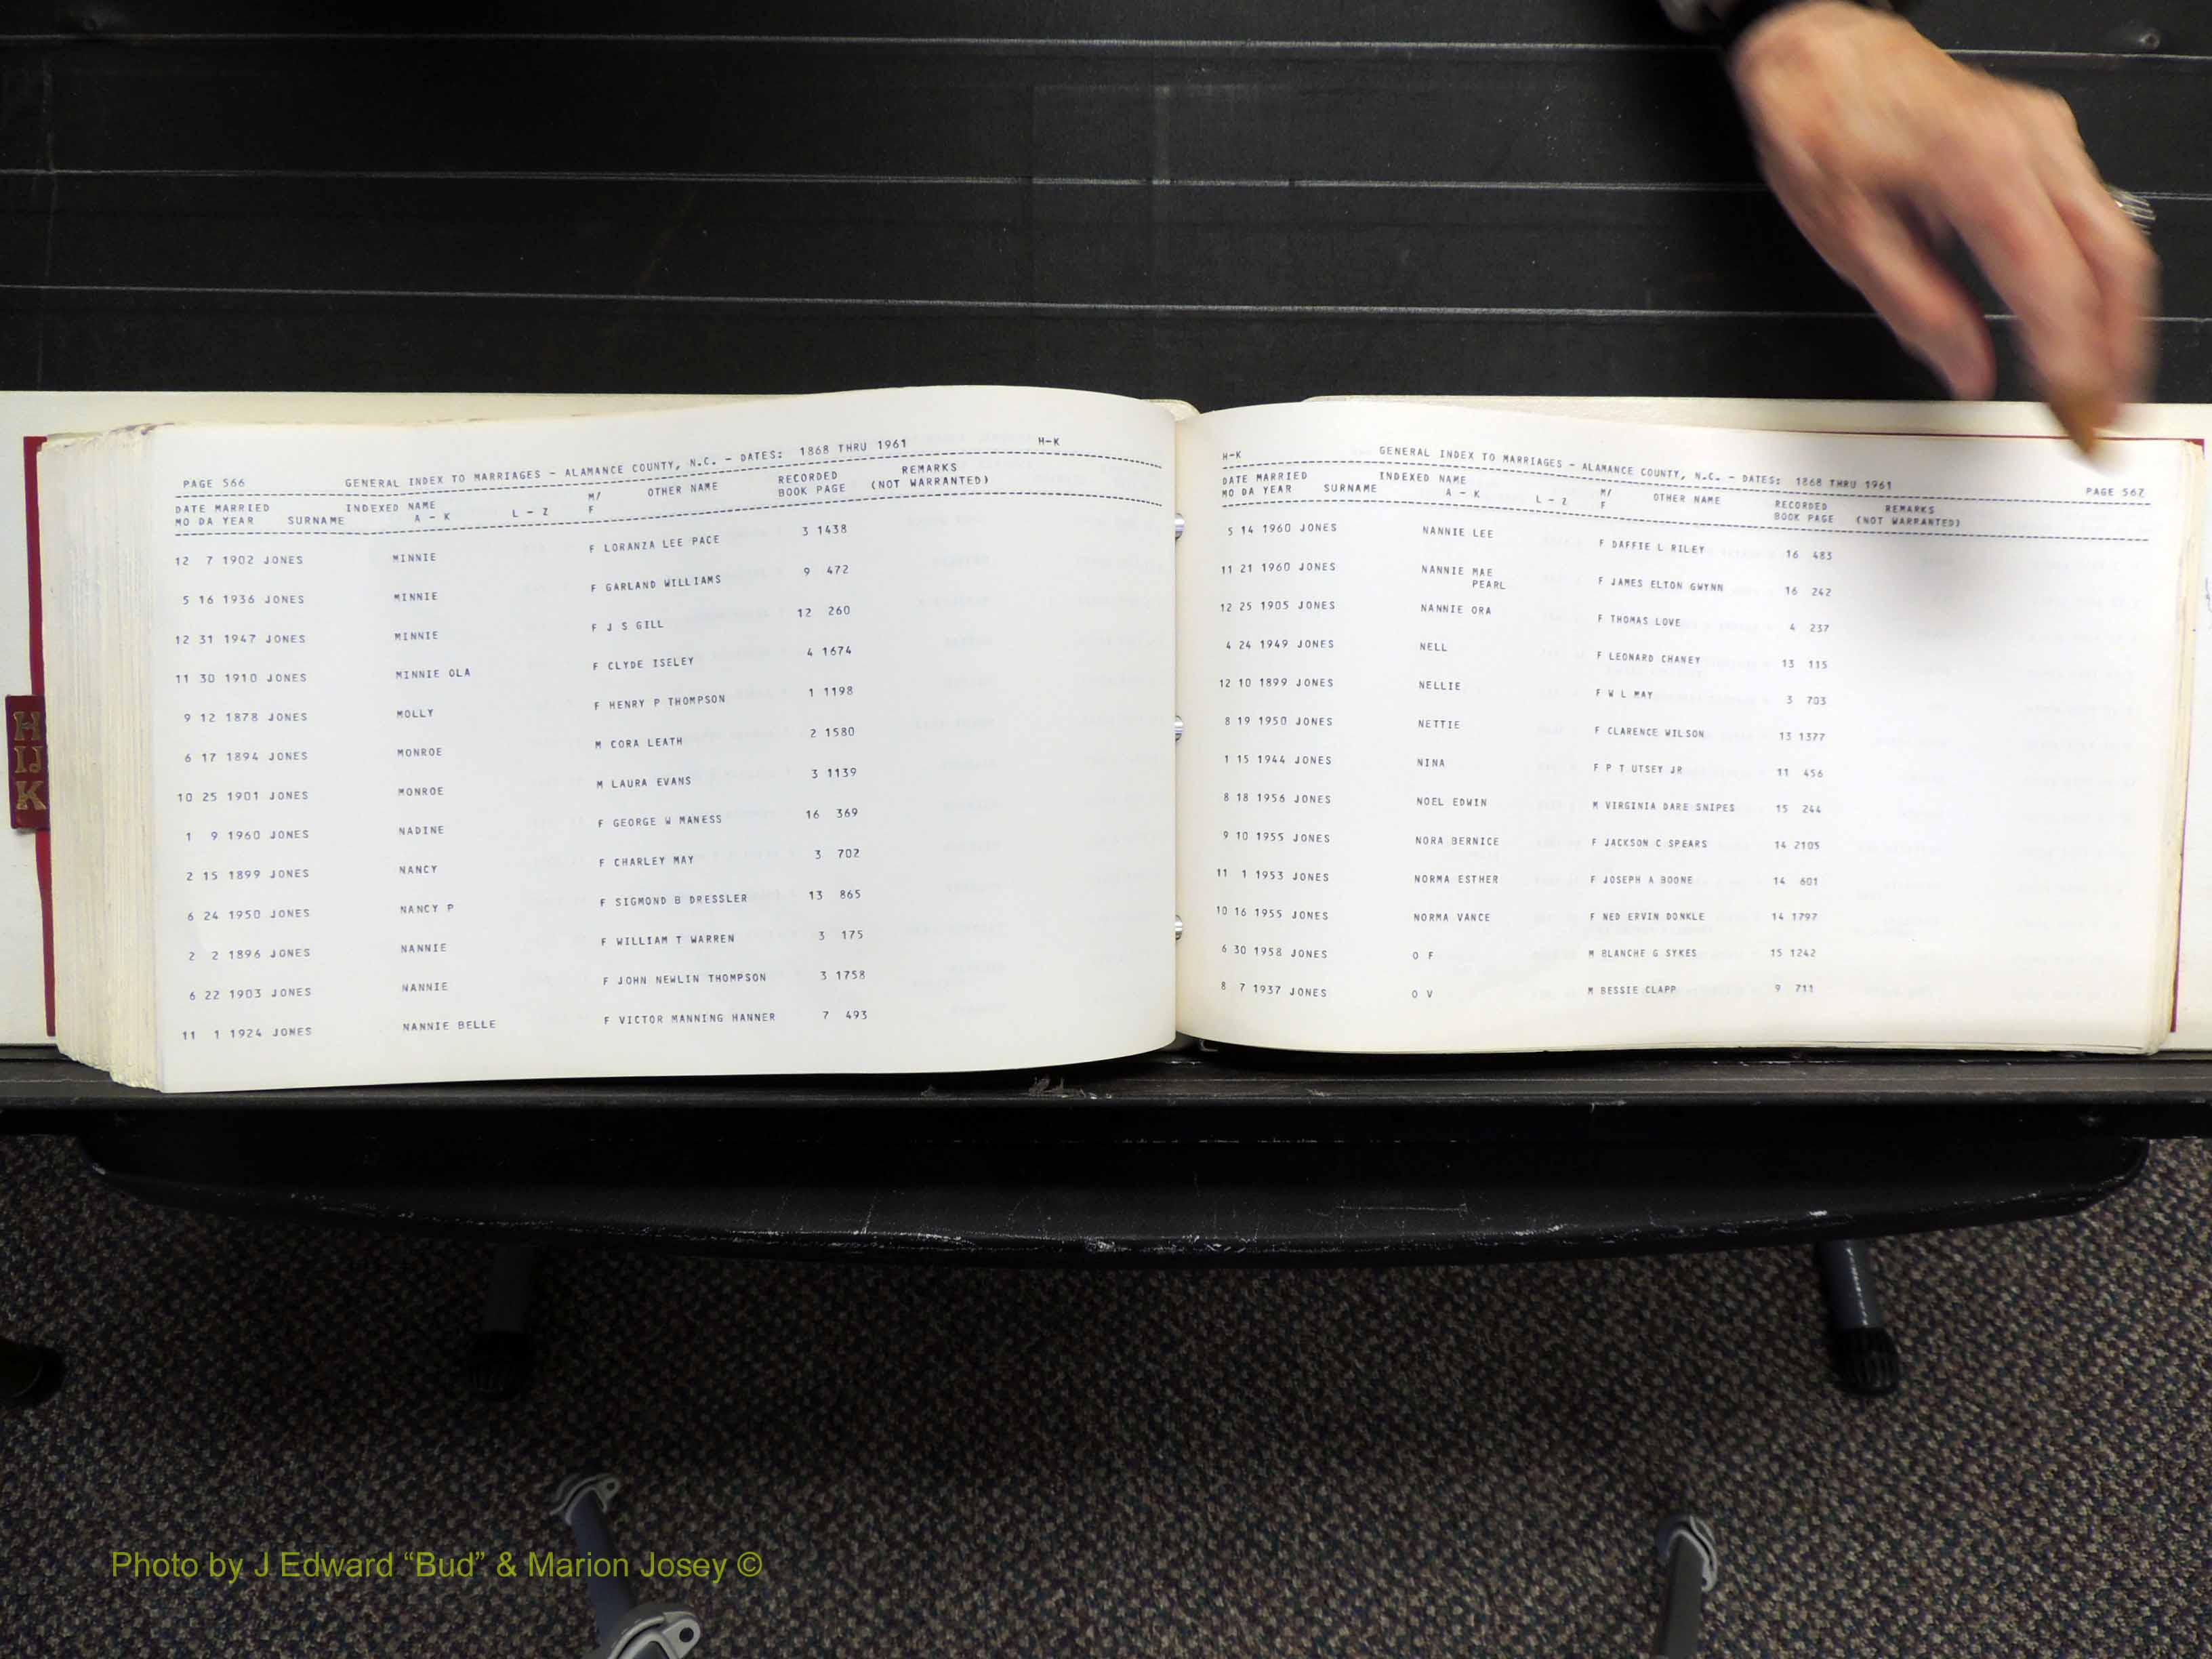 H
IJ
K
PAGE 566 GENERAL INDEX TO MARRIAGES - ALAMANCE COUNTY, N.C. - DATES: 1868 THRU 1961 H-K
DATE MARRIED INDEXED NAME M/ OTHER NAME RECORDED REMARKS
MO DA YEAR SURNAME A - K L - Z F BOOK PAGE (NOT WARRANTED)
12 7 1902 JONES MINNIE F LORANZA LEE PACE 3 1438
5 16 1936 JONES MINNIE F GARLAND WILLIAMS 9 472
12 31 1947 JONES MINNIE F J S GILL 12 260
11 30 1910 JONES MINNIE OLA F CLYDE ISELEY 4 1674
9 12 1878 JONES MOLLY F HENRY P THOMPSON 1 1198
6 17 1894 JONES MONROE M CORA LEATH 2 1580
10 25 1901 JONES MONROE M LAURA EVANS 3 1139
1 9 1960 JONES NADINE F GEORGE W MANESS 16 369
2 15 1899 JONES NANCY F CHARLEY MAY 3 702
6 24 1950 JONES NANCY P F SIGMOND B DRESSLER 13 865
2 2 1896 JONES NANNIE F WILLIAM T WARREN 3 175
6 22 1903 JONES NANNIE F JOHN NEWLIN THOMPSON 3 1758
11 1 1924 JONES NANNIE BELLE F VICTOR MANNING HANNER 7 493
H-K GENERAL INDEX TO MARRIAGES - ALAMANCE COUNTY, N.C. - DATES: 1868 THRU 1961 PAGE 567
DATE MARRIED INDEXED NAME M/ OTHER NAME RECORDED REMARKS
MO DA YEAR SURNAME A - K L - Z F BOOK PAGE (NOT WARRANTED)
5 14 1960 JONES NANNIE LEE F DAFFIE L RILEY 16 483
11 21 1960 JONES NANNIE MAE F JAMES ELTON GWYNN 16 242
PEARL
12 25 1905 JONES NANNIE ORA F THOMAS LOVE 4 237
4 24 1949 JONES NELL F LEONARD CHANEY 13 115
12 10 1899 JONES NELLIE F W L MAY 3 703
8 19 1950 JONES NETTIE F CLARENCE WILSON 13 1377
1 15 1944 JONES NINA F P T UTSEY JR 11 456
8 18 1956 JONES NOEL EDWIN M VIRGINIA DARE SNIPES 15 244
9 10 1955 JONES NORA BERNICE F JACKSON C SPEARS 14 2105
11 1 1953 JONES NORMA ESTHER F JOSEPH A BOONE 14 601
10 16 1955 JONES NORMA VANCE F NED ERVIN DONKLE 14 1797
6 30 1958 JONES O F M BLANCHE G SYKES 15 1242
8 7 1937 JONES O V M BESSIE CLAPP 9 711
Photo by J Edward “Bud” & Marion Josey ©